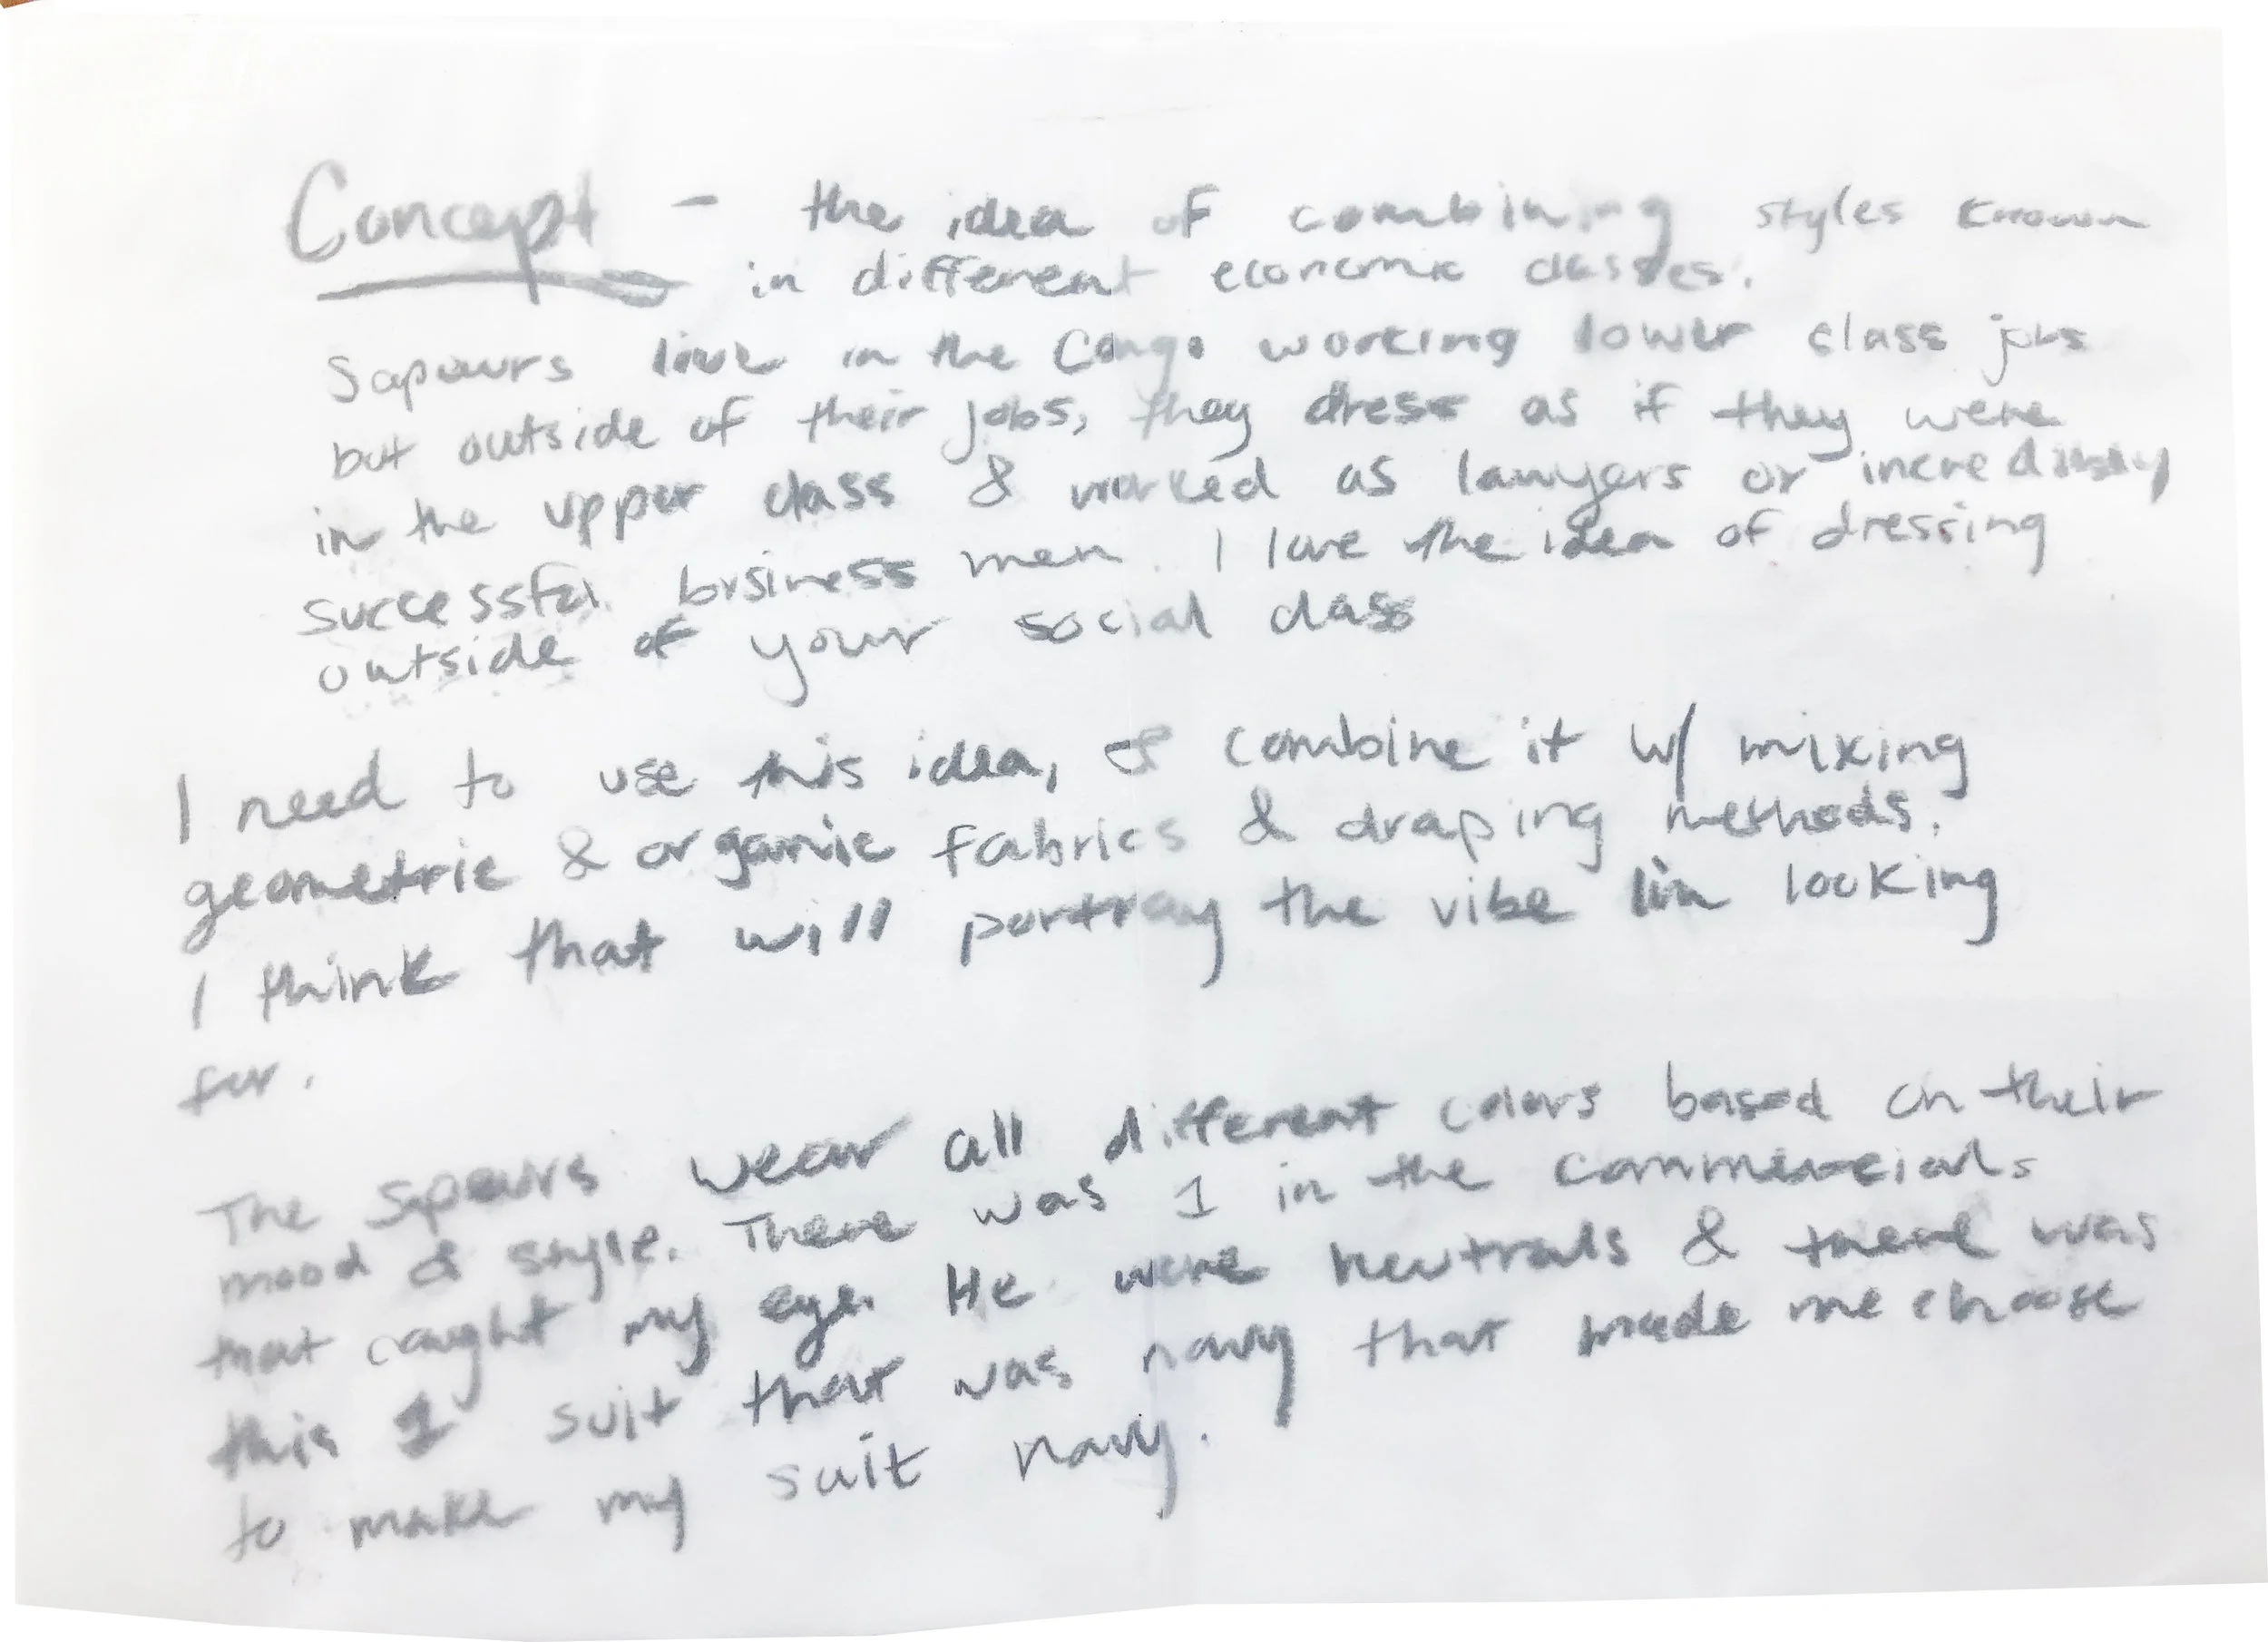 Concept - the idea of combining styles known
in different economic classes.
Sapeurs live in the Congo working lower class jobs
but outside of their jobs, they dress as if they were
in the upper class & worked as lawyers or incredibly
successful business men. I love the idea of dressing
outside of your social class
I need to use this idea, & combine it w/ mixing
geometric & organic fabrics & draping methods.
I think that will portray the vibe I'm looking
for.
The Speurs wear all different colors based on their
mood & style. There was 1 in the commercials
that caught my eye. He wore neutrals & there was
this 1 suit that was navy that made me choose
to make my suit navy.